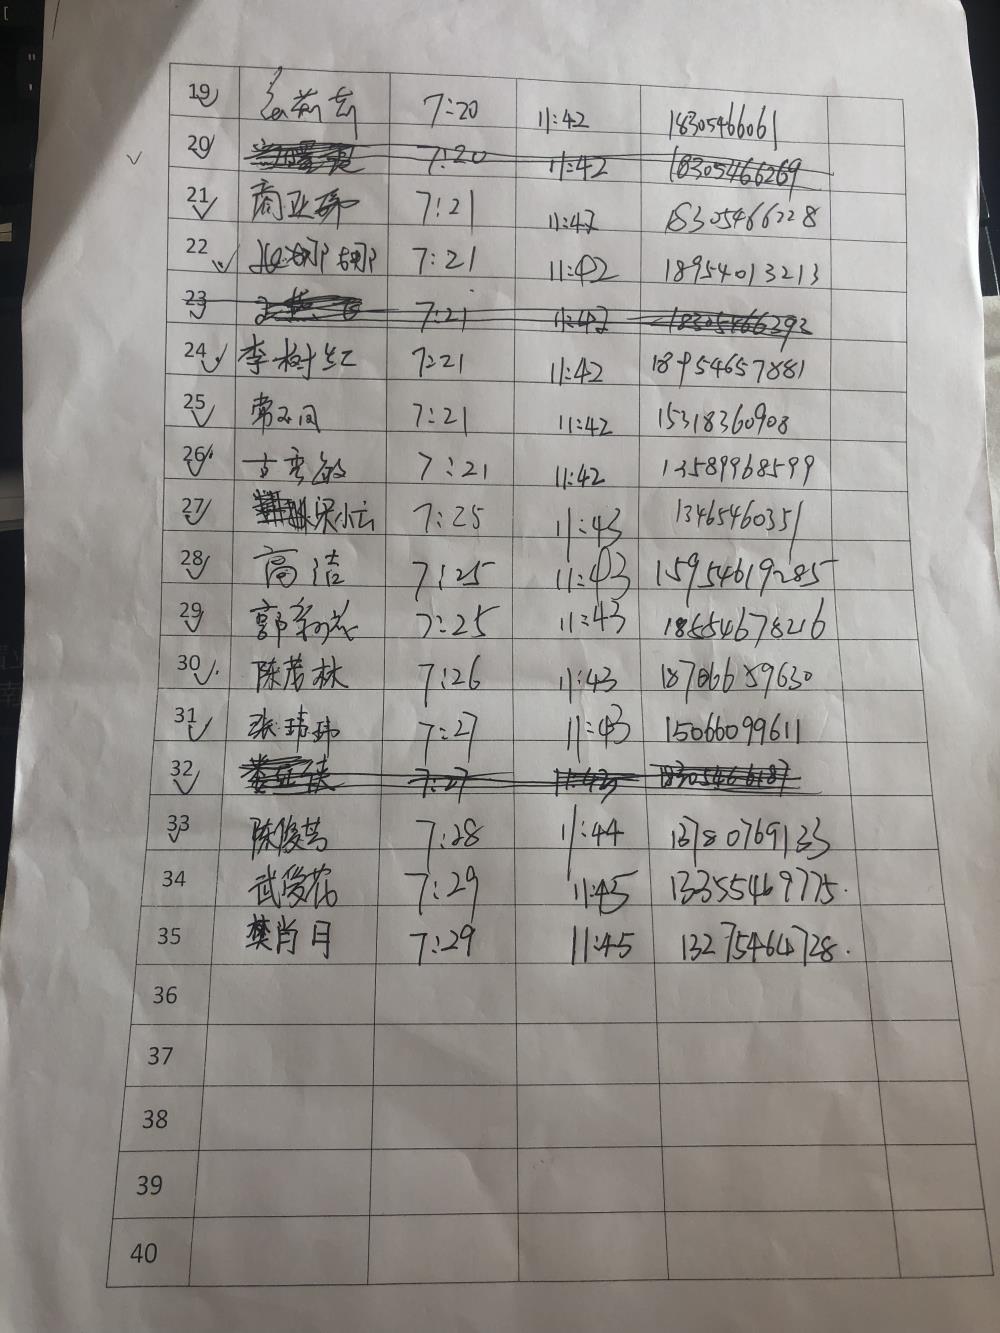 19 7:20 11:42 18305466061
20 7:20 11:42 18305466269
21 商亚 7:21 11:42 18305466228
22 娜娜 7:21 11:42 18954013213
23 7:21 11:42 18305466292
24 李树红 7:21 11:42 18954657881
25 常 7:21 11:42 15318360908
26 7:21 11:42 13589968599
27 梁小云 7:25 11:43 13465460351
28 高洁 7:25 11:43 15954619285
29 郭 7:25 11:43 18554678216
30 陈茂林 7:26 11:43 18706659630
31 张玮玮 7:27 11:43 15066099611
32 7:27 11:43 18305466187
33 陈俊芳 7:28 11:44 13780769133
34 武俊花 7:29 11:45 13355469775.
35 樊肖月 7:29 11:45 13275464728.
36
37
38
39
40